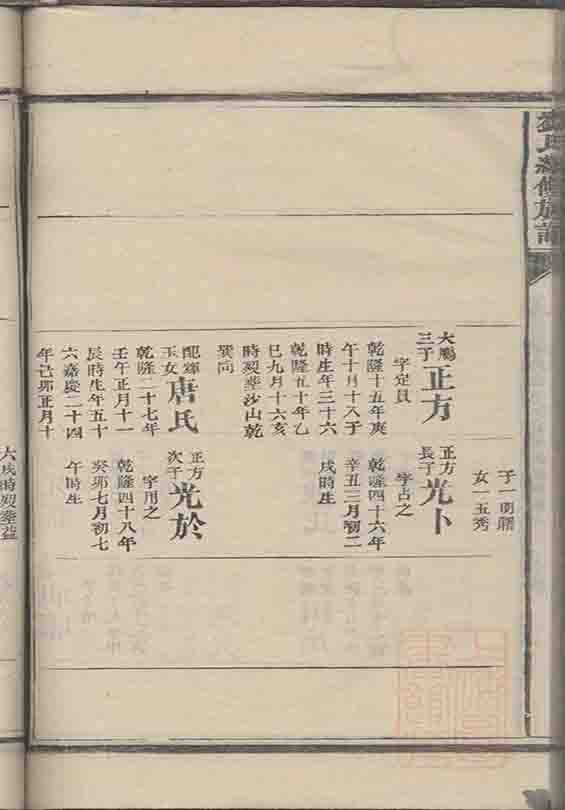 氏續修族譜
大鵬
三子
正方
字定員
乾隆十五年庚
午十月十八子
時生年三十六
乾隆五十年乙
巳九月十六亥
時歿葬沙山乾
巽向
配輝
玉女
唐氏
乾隆二十七年
壬午正月十一
辰時生年五十
六嘉慶二十四
年己卯正月十
子一明
女一五秀
正方
長子
光卜
字占之
乾隆四十六年
辛丑三月初二
戌時生
正方
次子
光於
字用之
乾隆四十八年
癸卯七月初七
午時生
六戌時歿葬益